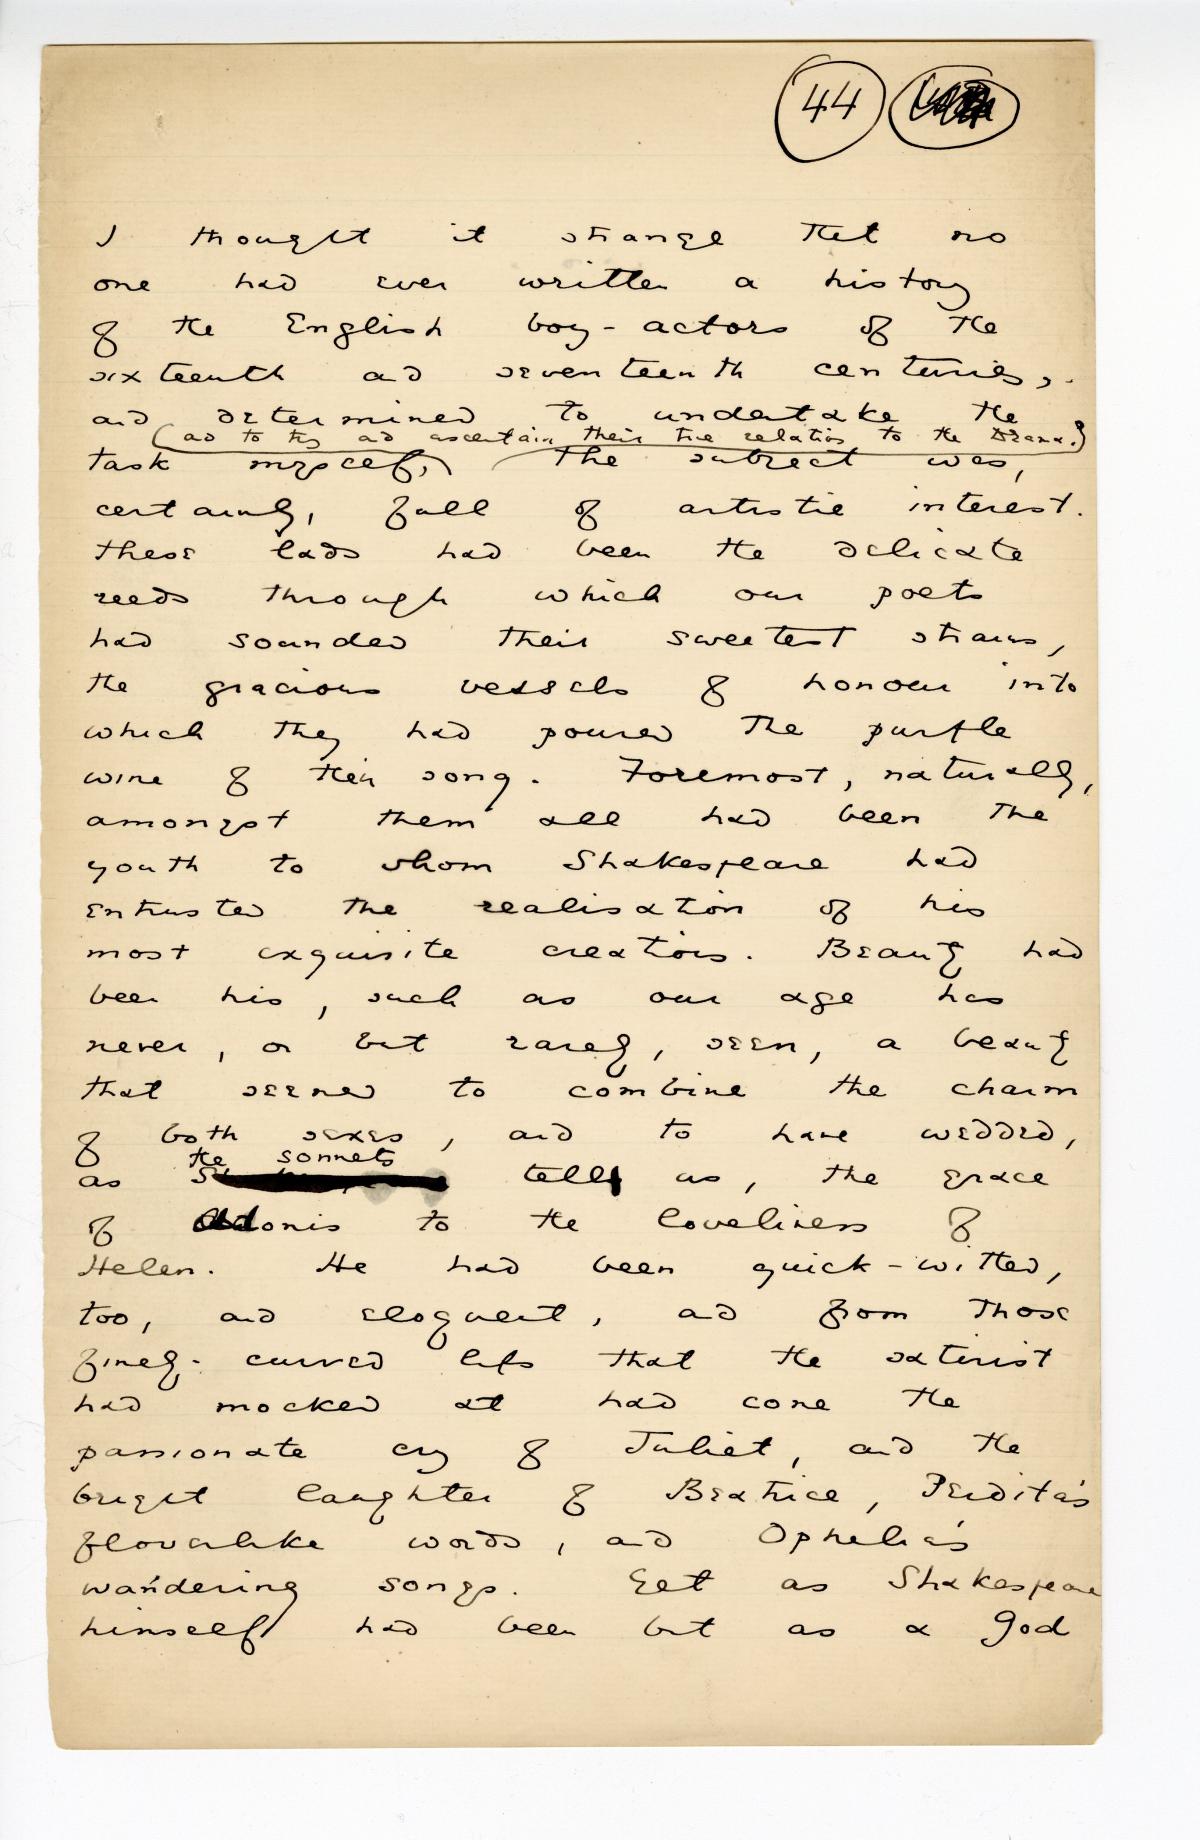 44
I thought it strange that no
one had ever written a history
of the English boy-actors of the
sixteenth and seventeenth centuries,
and determined to undertake the
(and to try and ascertain their true relations to the Drama.)
task myself, The subject was,
certainly, full of artistic interest.
These lads had been the delicate
reeds through which our poets
had sounded their sweetest strains,
the gracious vessels of honour into
which they had poured the purple
wine of their song. Foremost, naturally,
amongst them all had been the
youth to whom Shakespeare had
entrusted the realisation of his
most exquisite creations. Beauty had
been his, such as our age has
never, or but rarely, seen, a beauty
that seemed to combine the charm
of both sexes, and to have wedded,
the sonnets
as tell us, the grace
of Adonis to the loveliness of
Helen. He had been quick-witted,
too, and eloquent, and from those
finely-curved lips that the satirist
had mocked at had come the
passionate cry of Juliet, and the
bright laughter of Beatrice, Perdita's
flowerlike words, and Ophelia's
wandering songs. Yet as Shakespeare
himself had been but as a god